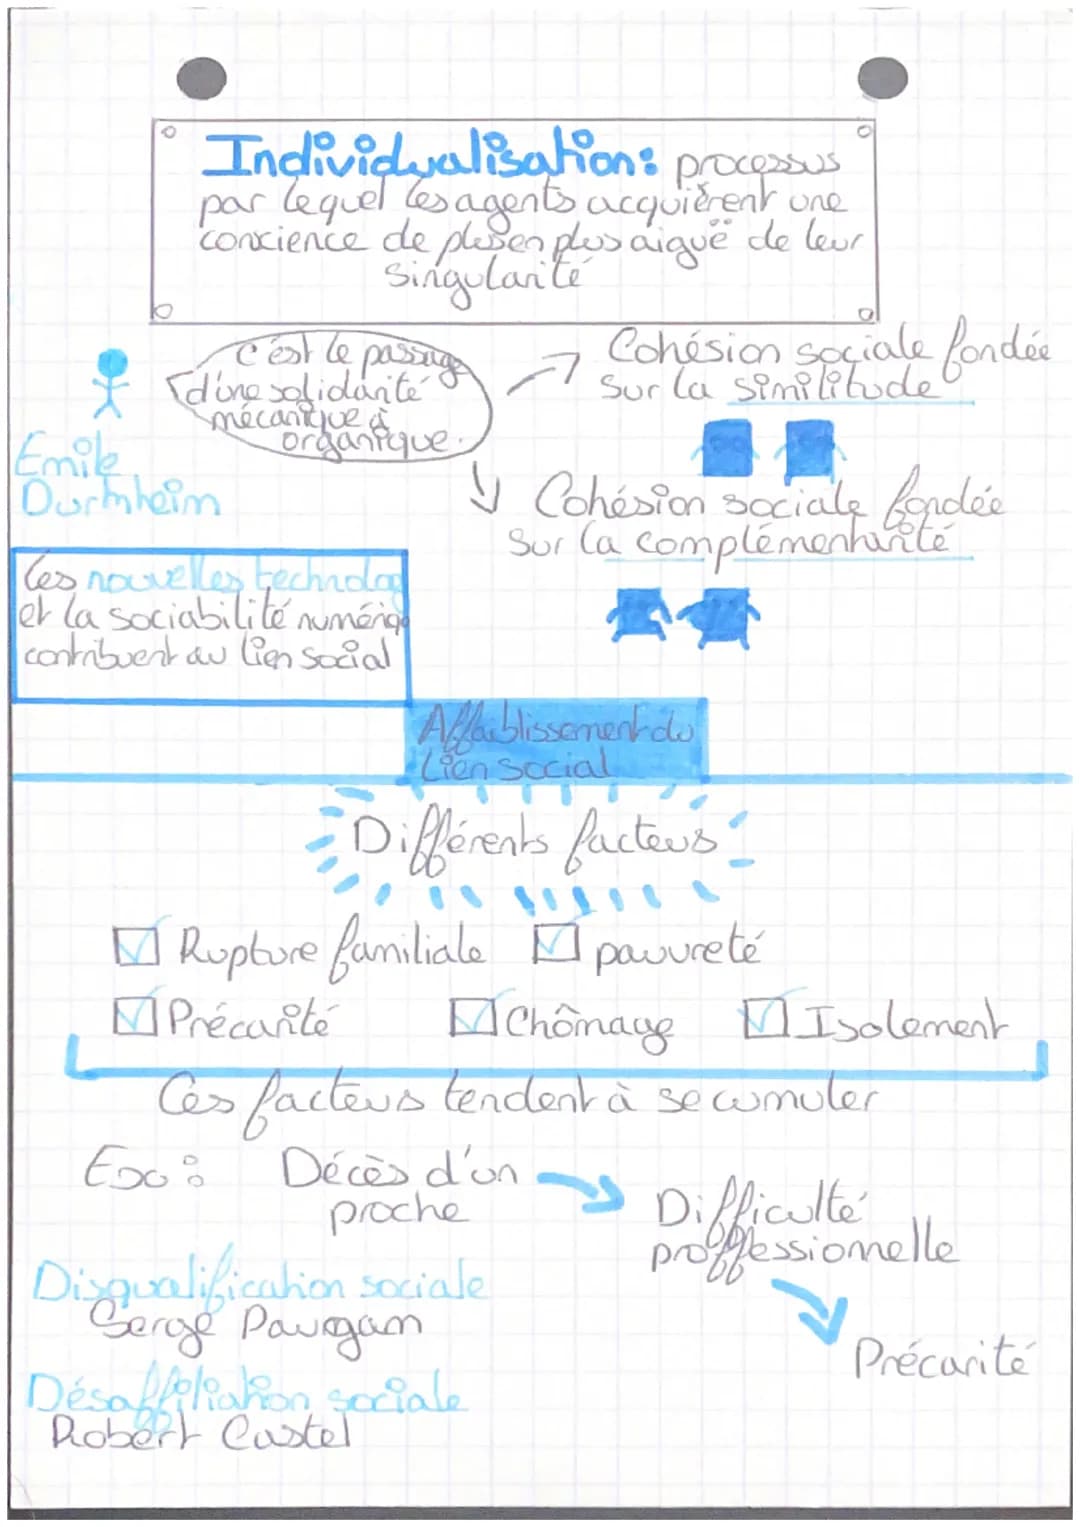 Individualisation: processus
par lequel les agents acquièrent une
conscience de plus en plus aiguë de leur
singularité
c'est le passage
d'une solidarité
mécanique à
organique.
Cohésion sociale fondée
sur la similitude
Emile
Durmheim
Cohésion sociale fondée
sur la complémentarité
les nouvelles technolog
et la sociabilité numériq
contribuent au lien social
Affaiblissement du
lien social
Différents facteurs
Rupture familiale pauvreté
Précarité Chômage Isolement
Ces facteurs tendent à se cumuler
Ex: Décès d'un
proche
Difficulté
proffessionnelle
Précarité
Disqualification sociale
Serge Paugam
Désaffiliation sociale
Robert Castel